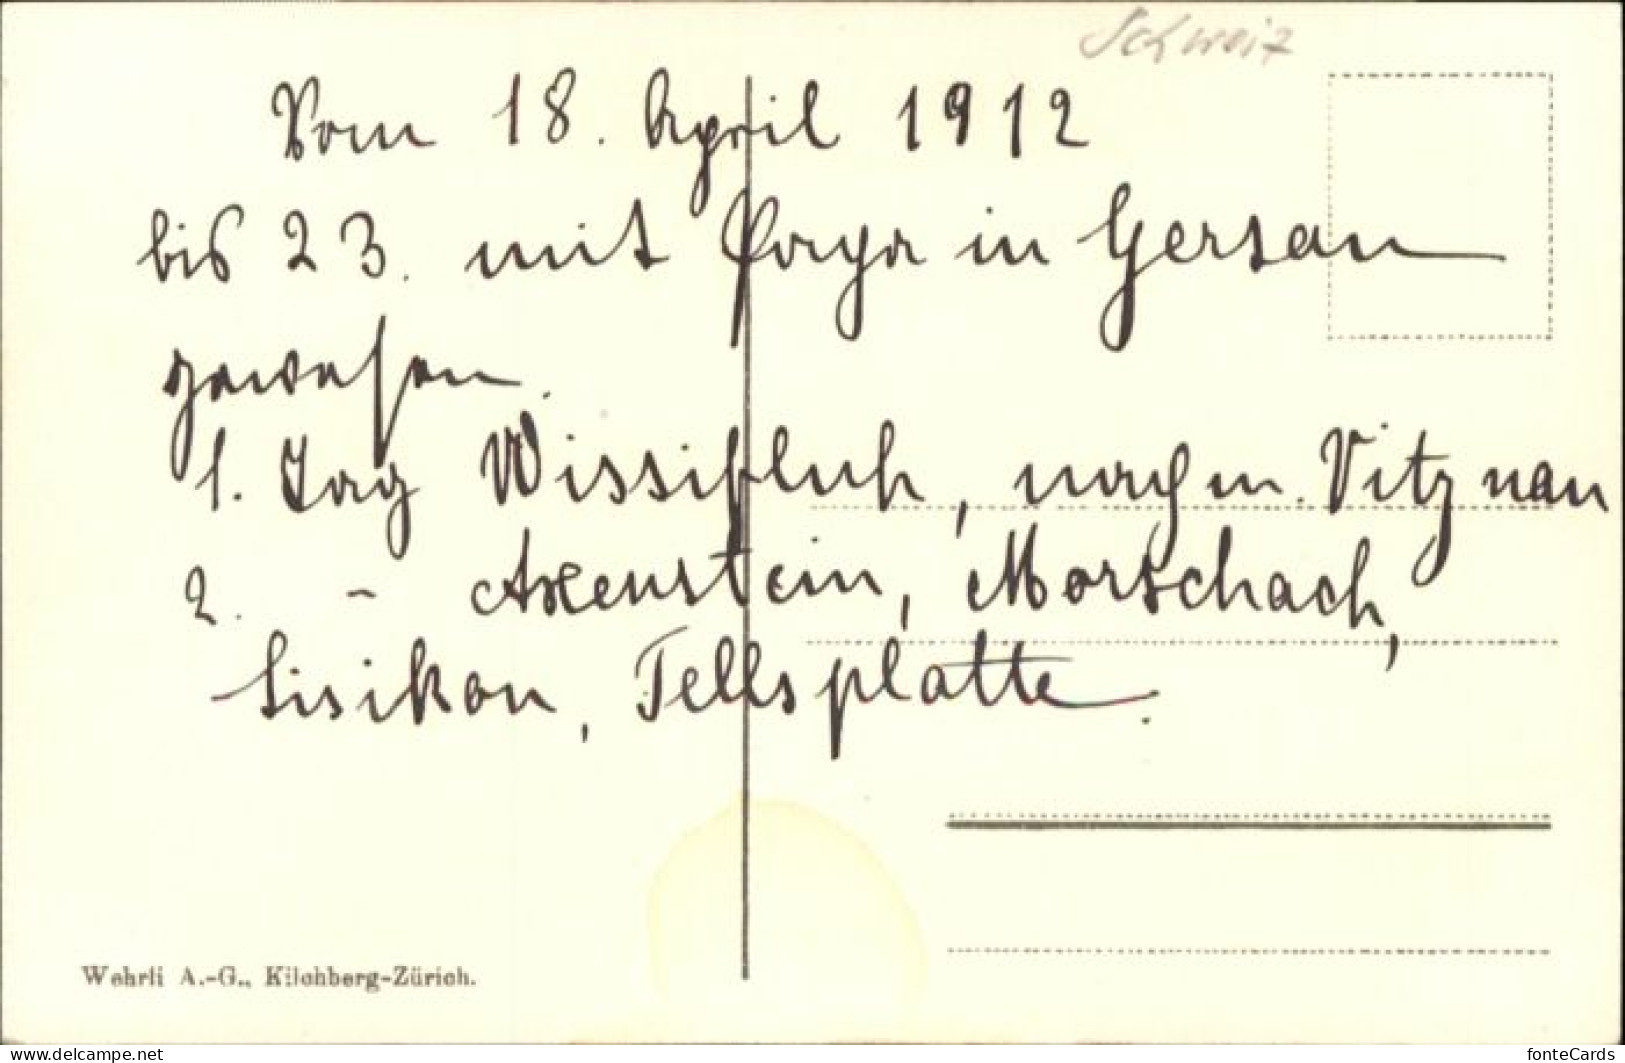 Schweiz
Vom 18. April 1912
bis 23. mit Papa in Gersau
gewesen.
1. Tag Wissifluh, nachm. Vitznau
2. - Axenstein, Morschach,
Sisikon, Tellsplatte.
Wehrli A.-G., Kilchberg-Zürich.
www.delcampe.net
fonteCards